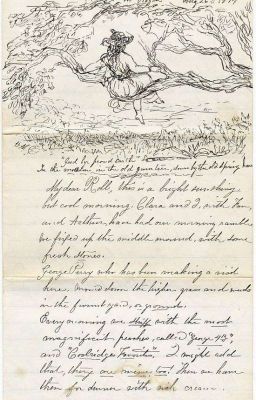 "Good by proud Earth"
In the meadow in the old garden, down by the old spring house
My dear Roll, this is a bright sunshiny
but cool morning. Clara and I, with Fan,
and Arthur, have had our morning ramble.
We fixed up the middle mound, with some
fresh stones.
George Perry who has been making a visit
here mowed down the higher grass and weeds
in the front yard, or ground.
Every evening are stuff with the most
magnificent peaches, call'd "George 4th",
and "Coolridge Favorites" I might add
that, they are mine, too! Then we have
them for dinner with rich cream.